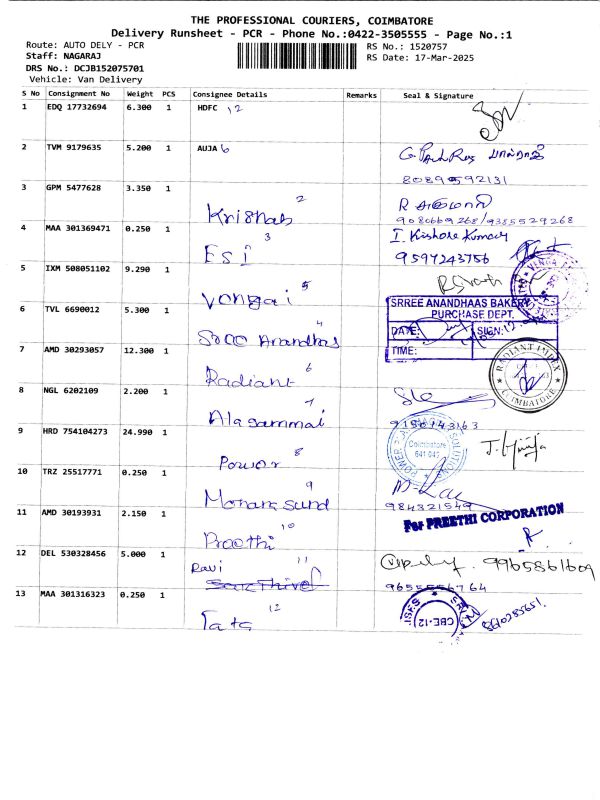 THE PROFESSIONAL COURIERS, COIMBATORE
Delivery Runsheet - PCR - Phone No.:0422-3505555 - Page No.:1
Route: AUTO DELY - PCR RS No.: 1520757
Staff: NAGARAJ RS Date: 17-Mar-2025
DRS No.: DCJB152075701
Vehicle: Van Delivery
S No Consignment No Weight PCS Consignee Details Remarks Seal & Signature
1 EDQ 17732694 6.300 1 HDFC 12
2 TVM 9179635 5.200 1 AUJA 6
8089592131
3 GPM 5477628 3.350 1 2
Krishab
9080669268/9385529268
4 MAA 301369471 0.250 1 3 I. Kishore Kumar
Esi 9597243756
5 IXM 508051102 9.290 1 5
Vengai
SRREE ANANDHAAS BAKERY
6 TVL 6690012 5.300 1 PURCHASE DEPT.
4 DATE: SIGN:
Sree Anandhas
7 AMD 30293057 12.300 1 TIME:
6 RADIANT IMPEX
Radiant COIMBATORE
8 NGL 6202109 2.200 1
7
Alagammai
9 HRD 754104273 24.990 1 SOLUTIONS
8 Coimbatore
Power 641 045
10 TRZ 25517771 0.250 1
9
984321549
11 AMD 30193931 2.150 1 For PREETHI CORPORATION
10
Preethi
12 DEL 530328456 5.000 1 11 9965861609
Ravi
Sakthivel
13 MAA 301316323 0.250 1 12 CBE-12
Tata